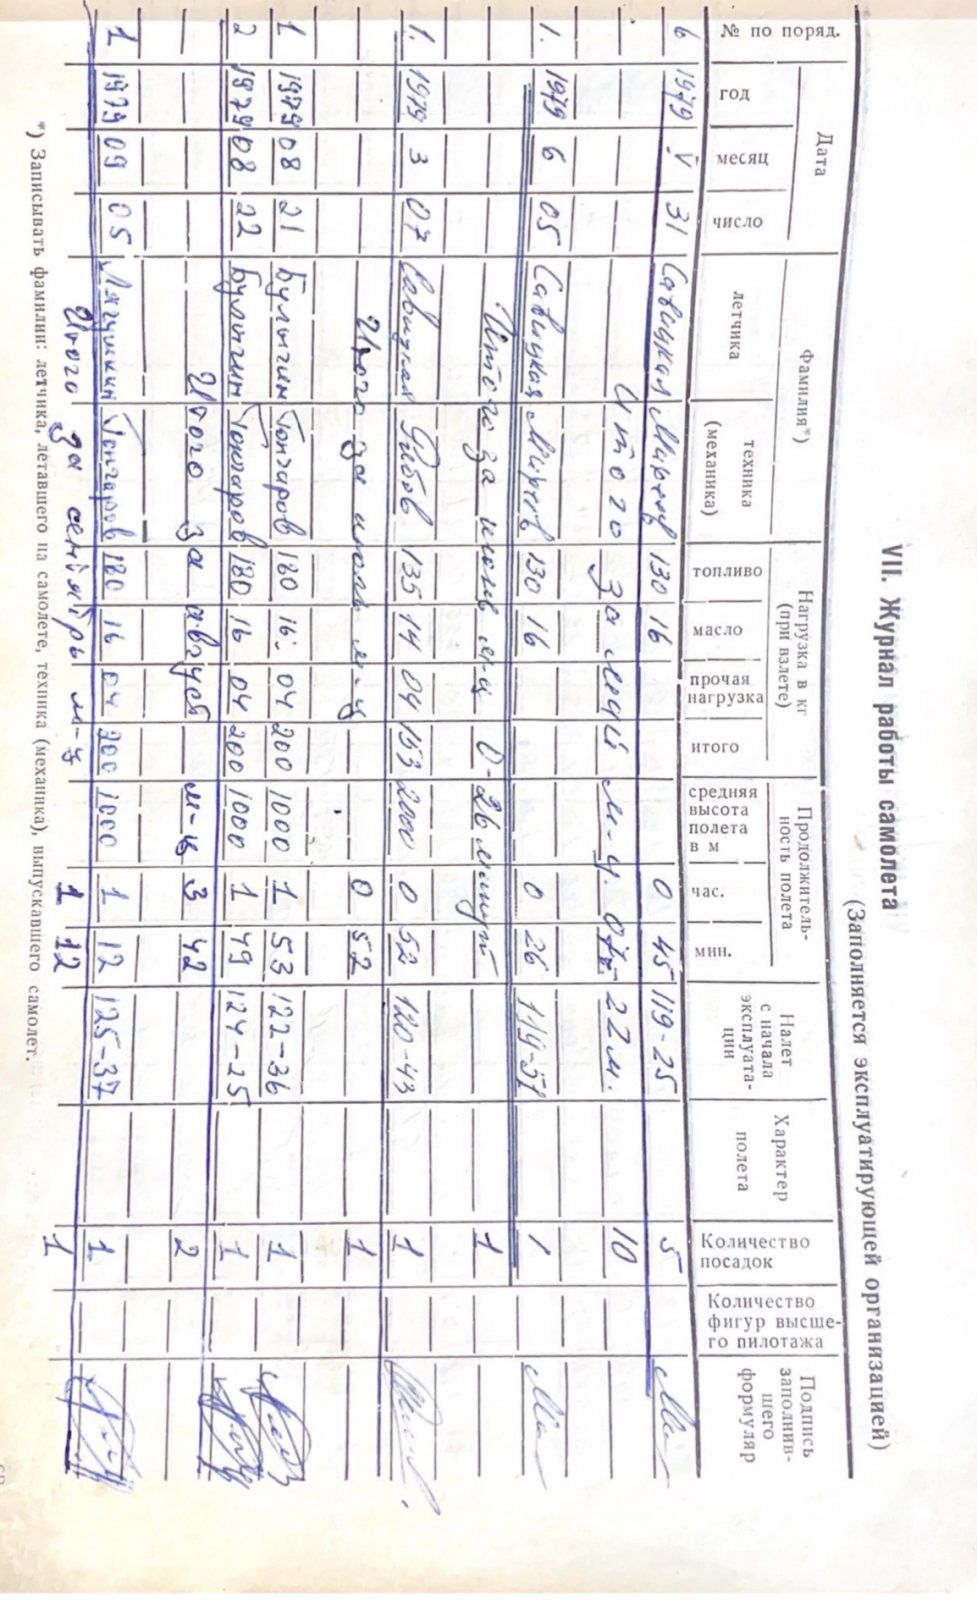 VII. Журнал работы самолета
(Заполняется эксплуатирующей организацией)
№ по поряд. | Дата | Фамилия*) | Нагрузка в кг (при взлете) | Продолжительность полета | Налет с начала эксплуатации | Характер полета | Количество посадок | Количество фигур высшего пилотажа | Подпись заполнившего формуляр
год | месяц | число | летчика | техника (механика) | топливо | масло | прочая нагрузка | итого | средняя высота полета в м | час. | мин.
6 1979 V 31 Савицкая 130 16 0 45 119-25 5
Итого за май м-ц. 07ч 22м. 10
1. 1979 6 05 Савицкая 130 16 0 26 119-51 1
Итого за июнь м-ц 0-26 минут 1
1. 1979 3 07 Савицкая 135 14 04 153 2000 0 52 120-43 1
Итого за июль м-ц 0 52 1
1 1979 08 21 Булыгин Гончаров 180 16 04 200 1000 1 53 122-36 1
2 1979 08 22 Булыгин Гончаров 180 16 04 200 1000 1 49 124-25 1
Итого за август м-ц 3 42 2
1 1979 09 05 Лягушкин Гончаров 180 16 04 200 1000 1 12 125-37 1
Итого за сентябрь м-ц 1 12 1
*) Записывать фамилии: летчика, летавшего на самолете, техника (механика), выпускавшего самолет.